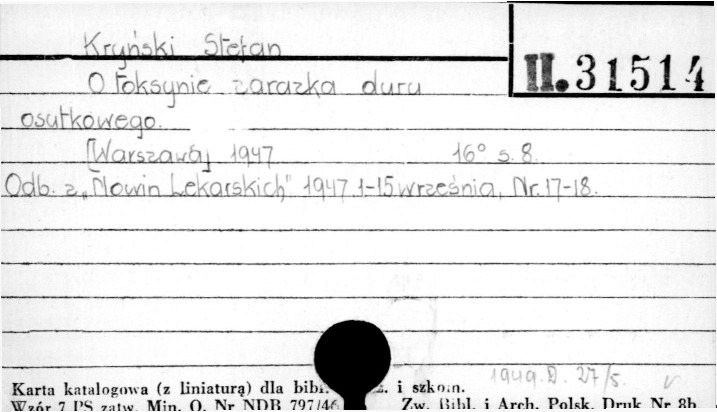 Kryński Stefan
II.31514
O toksynie zarazka duru
osutkowego.
[Warszawa] 1947 16° s. 8.
Odb. z „Nowin Lekarskich" 1947 1-15 września, Nr. 17-18.
1949.D. 27/5. v
Karta katalogowa (z liniaturą) dla bibl. i szkoln.
Wzór 7 PS zatw. Min. O. Nr NDB 797/46 Zw. Bibl. i Arch. Polsk. Druk Nr 8b